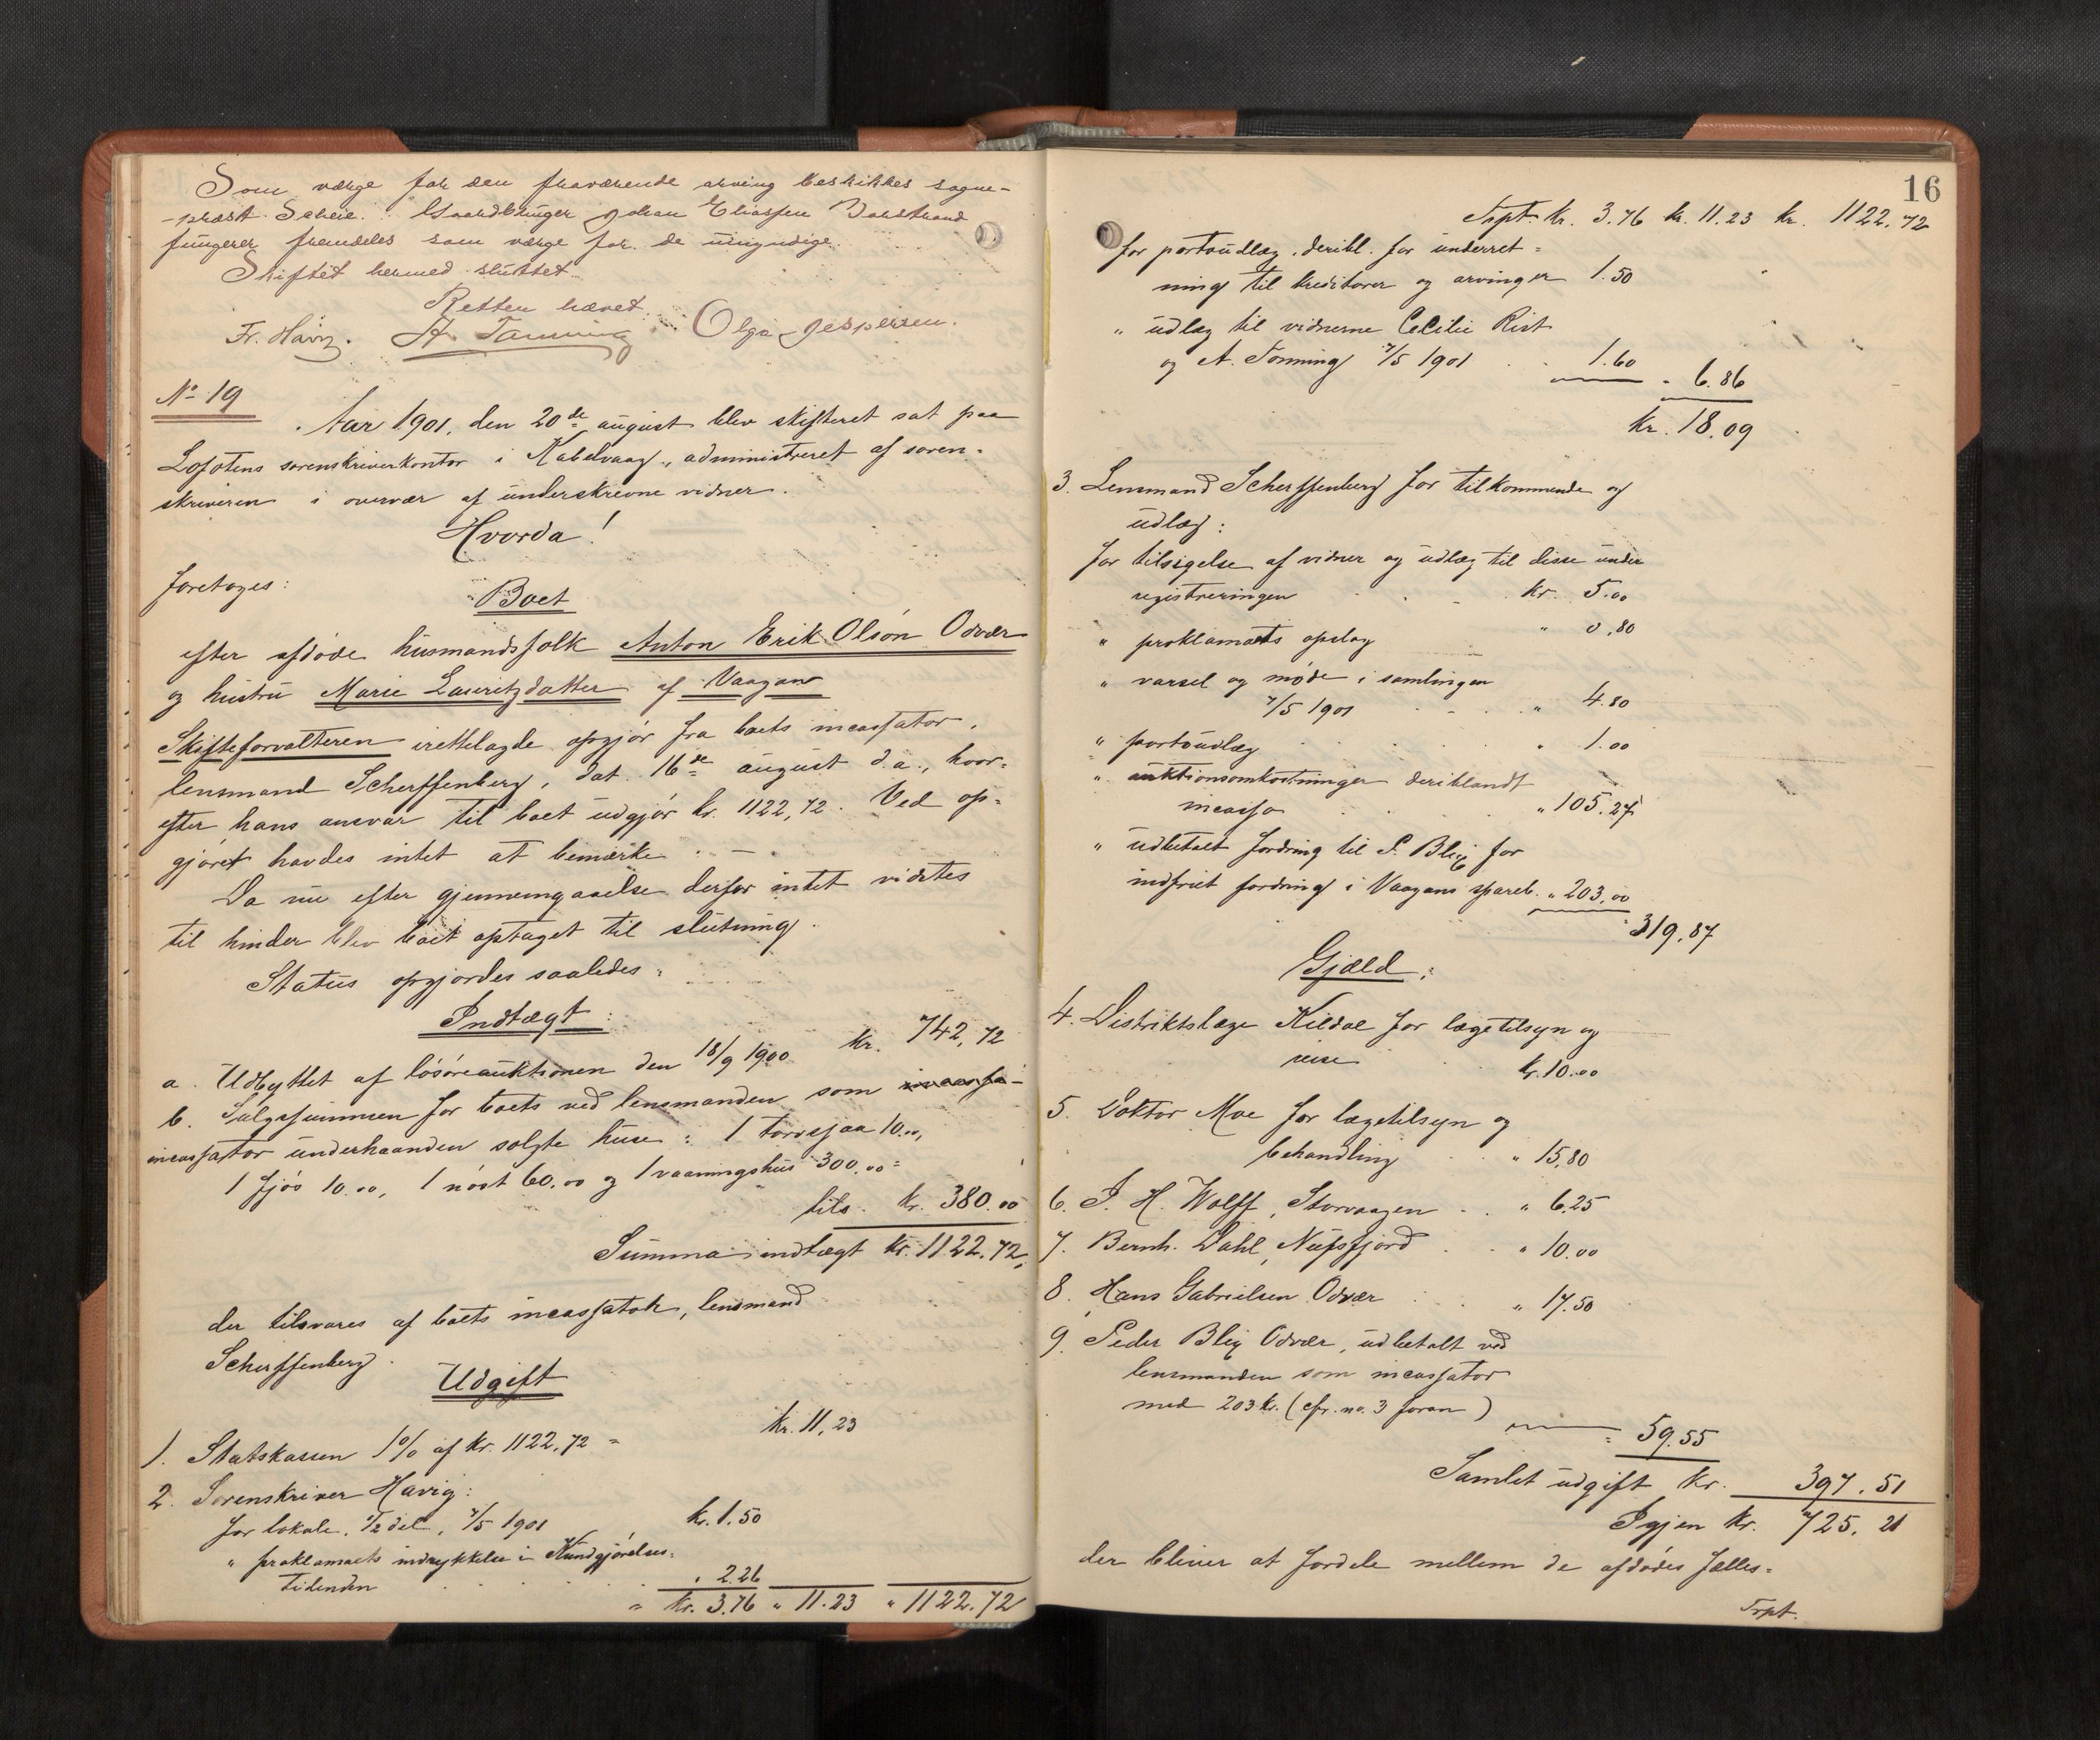 Som værge for den fraværende arving beskikkes sogne-
-præst Scheie. Gaardbruger Johan Eliassen
fungerer fremdeles som værge for de umyndige.
Skiftet hermed sluttet.
Retten hævet.
Fr. Havig. A. Tønning Olga Jespersen.
No 19
Aar 1901, den 20de august blev skifteret sat paa
Lofotens sorenskriverkontor i Kabelvaag, administreret af soren-
skriveren i overvær af underskrevne vidner.
Hvorda!
foretoges:
Boet
efter afdøde husmandsfolk Anton Erik Olsón Odvær
og hustru Marie Lauritzdatter af Vaagan
Skifteforvalteren irettelagde opgjør fra boets incassator,
lensmand Scherffenberg, dat. 16de august d.a., hvor-
efter hans ansvar til boet udgjør kr. 1122,72. Ved op-
gjøret havdes intet at bemærke. -
Da nu efter gjennemgaaelse derfor intet vidstes
til hinder blev boet optaget til slutning.
Status opgjordes saaledes:
Indtægt:
a. Udbyttet af løsøreauktionen den 18/9 1900 kr. 742,72
b. Salgssummen for boets ved lensmanden som incassa-
incassator underhaanden solgte huse: 1 torvsjaa 10.00,
1 fjøs 10.00, 1 nøst 60.00 og 1 vaaningshus 300.00 =
tils. kr. 380.00
Summa indtægt kr. 1122.72,
der tilsvares af boets incassator, lensmand
Scherffenberg.
Udgift
1. Statskassen 1% af kr. 1122,72 = kr. 11,23
2. Sorenskriver Havig:
for lokale, 1/2 del, 7/5 1901 kr. 1.50
" proklamaets indrykkelse i Kundgjørelses-
tidenden " 2.26
kr. 3.76 " 11.23 " 1122.72
16
Trpt. kr. 3.76 kr. 11.23 kr. 1122.72
for portoudlæg, deribl. for underret-
ning til kreditorer og arvinger 1.50
" udlæg til vidnerne Cecilie Rist
og A. Tønning 7/5 1901 1.60 " 6.86
kr. 18.09
3. Lensmand Scherffenberg for tilkommende og
udlæg:
for tilsigelse af vidner og udlæg til disse under
registreringen kr. 5.00
" proklamaets opslag " 0.80
" varsel og møde i samlingen
7/5 1901 " 4.80
" portoudlæg " 1.00
" auktionsomkostninger deriblandt
incasso " 105.27
" udbetalt fordring til P. Blix for
indfriet fordring i Vaagans spareb. " 203,00
" 319,87
Gjæld:
4. Distriktslæge Kildal for lægetilsyn og
reise kr. 10.00
5. Doktor Moe for lægetilsyn og
behandling " 15,80
6. J. H. Wolff, Storvaagen " 6.25
7. Bernh. Dahl, Nufsfjord " 10.00
8. Hans Gabrielsen Odvær " 17.50
9. Peder Blix Odvær, udbetalt ved
lensmanden som incassator
med 203 kr. (cfr. no. 3 foran)
" 59.55
Samlet udgift kr. 397.51
Igjen kr. 725.21
der bliver at fordele mellem de afdødes fælles-
Trpt.